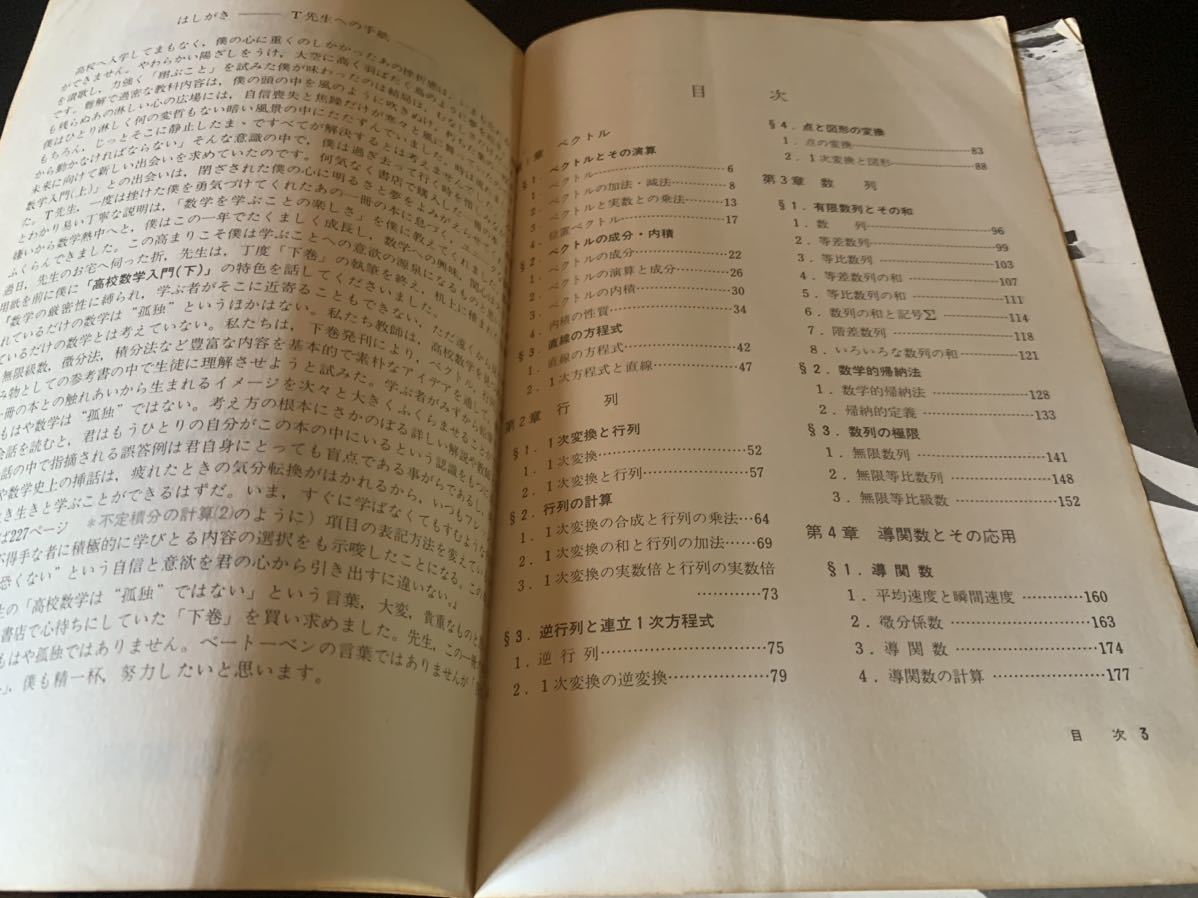 はしがき —— T先生への手紙 ——
高校へ入学してまもなく，僕の心に重くのしかかったあの挫折感は
ができません。やわらかい陽ざしをうけ，大空に高く羽ばたく鳥のように
を讃歌し，力強く「翔ぶこと」を試みた僕が味わったのは結局は，むなし
です。難解で過密な教科内容は，僕の頭の中を風のように吹きぬけ，朽ちた
も残らぬあの淋しい心の広場には，自信喪失と焦躁だけが寒々と風に
僕はひとり淋しく何の変哲もない暗い風景の中にただずんでいました。時は流れ
もちろん，じっとそこに静止したまゝですべてが解決するとは考えません
から動かなければならない」そんな意識の中で，僕は過ぎ去って行く時を惜し
未来に向けて新しい出会いを求めていたのです。何気なく書店で購入した一冊の本
数学入門(上)」との出会いは，閉ざされた僕の心に明るさと夢をよみがえらせて
た。T先生，一度は挫けた僕を勇気づけてくれたあの一冊の本に息づく，ユニーク
とわかり易い丁寧な説明は，「数学を学ぶことの楽しさ」を僕に教えてくれました
嫌いから数学熱中へと，僕はこの一年でたくましく成長し，数学への興味，関心は
ふくらんできました。この高まりこそ僕は学ぶことへの意欲の源泉になるものと思
過日，先生のお宅へ伺った折，先生は，丁度「下巻」の執筆を終え，机上に積まれ
用紙を前に僕に「高校数学入門(下)」の特色を話してくださいました。
「数学の厳密性に縛られ，学ぶ者がそこに近寄ることもできない，ただ遠くから
れているだけの数学は“孤独”というほかはない。私たち教師は，高校数学を
ているだけの数学とは考えていない。私たちは，下巻発刊により，ベクトル，行列
無限級数，微分法，積分法など豊富な内容を基本的で素朴なアイデアを通して
み物としての参考書の中で生徒に理解させようと試みた。学ぶ者がみずから
一冊の本との触れあいから生まれるイメージを次々と大きくふくらませることが
もはや数学は“孤独”ではない。考え方の根本にさかのぼる詳しい解説や
会話を読むと，君はもうひとりの自分がこの本の中にいるという認識をもつ
話の中で指摘される誤答例は君自身にとっても盲点である事がらであるし
や数学史上の挿話は，疲れたときの気分転換がはかれるから，いつもフレ
き生きと学ぶことができるはずだ。いま，すぐに学ばなくてもすむような
ば227ページ ＊不定積分の計算(2)のように）項目の表記方法を変えてい
不得手な者に積極的に学びとる内容の選択をも示唆したことになる。この
恐くない”という自信と意欲を君の心から引き出すに違いない。」
生の「高校数学は“孤独”ではない」という言葉，大変，貴重なものと
書店で心待ちにしていた「下巻」を買い求めました。先生，この一冊
もはや孤独ではありません。ベートーベンの言葉ではありませんが
」，僕も精一杯，努力したいと思います。
目 次
章 ベクトル
§1．ベクトルとその演算
1．ベクトル……6
2．ベクトルの加法・減法……8
3．ベクトルと実数との乗法……13
4．位置ベクトル……17
§2．ベクトルの成分・内積
1．ベクトルの成分……22
2．ベクトルの演算と成分……26
3．ベクトルの内積……30
4．内積の性質……34
§3．直線の方程式
1．直線の方程式……42
2．1次方程式と直線……47
第2章 行 列
§1．1次変換と行列
1．1次変換……52
2．1次変換と行列……57
§2．行列の計算
1．1次変換の合成と行列の乗法…64
2．1次変換の和と行列の加法……69
3．1次変換の実数倍と行列の実数倍
……73
§3．逆行列と連立1次方程式
1．逆 行 列……75
2．1次変換の逆変換……79
§4．点と図形の変換
1．点の変換……83
2．1次変換と図形……88
第3章 数 列
§1．有限数列とその和
1．数 列……96
2．等差数列……99
3．等比数列……103
4．等差数列の和……107
5．等比数列の和……111
6．数列の和と記号Σ……114
7．階差数列……118
8．いろいろな数列の和……121
§2．数学的帰納法
1．数学的帰納法……128
2．帰納的定義……133
§3．数列の極限
1．無限数列……141
2．無限等比数列……148
3．無限等比級数……152
第4章 導関数とその応用
§1．導関数
1．平均速度と瞬間速度……160
2．微分係数……163
3．導 関 数……174
4．導関数の計算……177
目 次 3